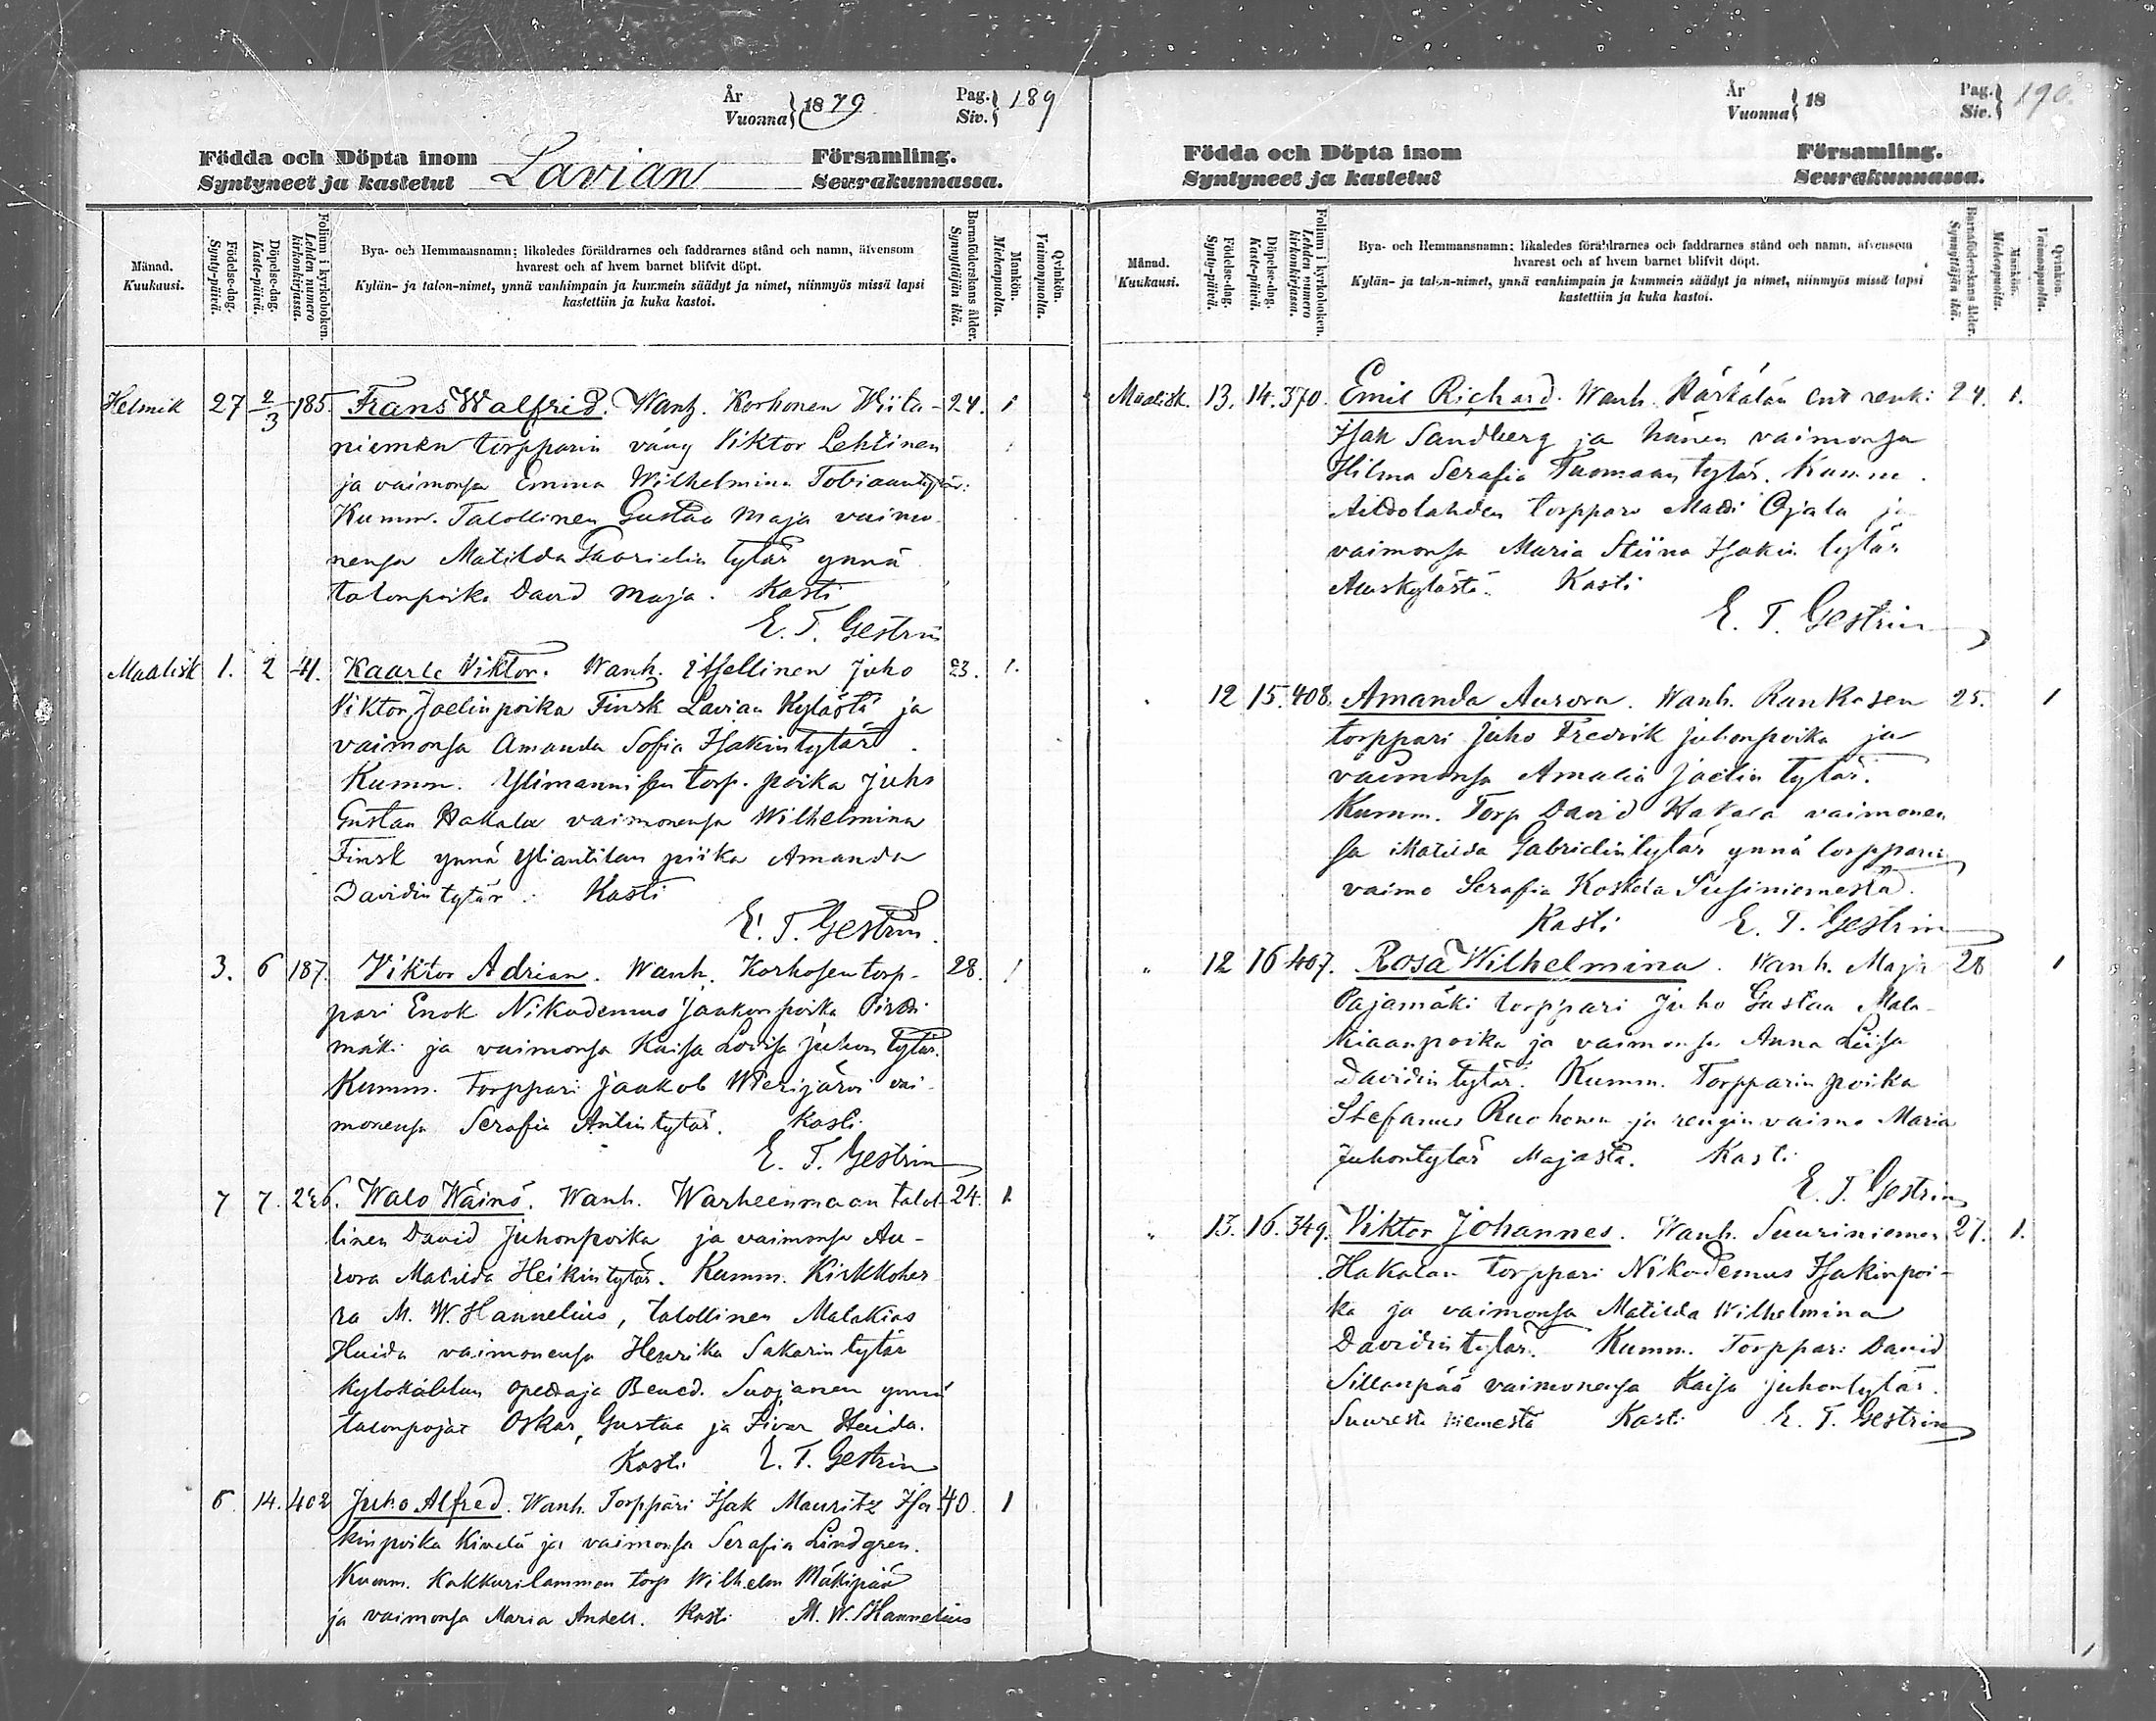 År
Vuonna 1879.
Pag.
Siv. 189
Födda och Döpta inom Lavian Församling.
Syntyneet ja kastetut Seurakunnassa.
Månad.
Kuukausi.
Födelse-dag.
Synty-päivä.
Döpelse-dag.
Kaste-päivä.
Folium i kyrkoboken.
Lehden numero
kirkonkirjassa.
Bya- och Hemmansnamn; likaledes föräldrarnes och faddrarnes stånd och namn, äfvensom
hvarest och af hvem barnet blifvit döpt.
Kylän- ja talon-nimet, ynnä vanhimpain ja kummein säädyt ja nimet, niinmyös missä lapsi
kastettiin ja kuka kastoi.
Barnaföderskans ålder.
Synnyttäjän ikä.
Mankön.
Miehenpuolta.
Qvinkön.
Vaimonpuolta.
Helmik 27 2/3 185. Frans Walfrid. Wanh. Korhonen Wiita- 24. 1
niemen torpparin väug Viktor Lehtinen
ja vaimonsa Emma Wilhelmina Tobiaantytär.
Kumm. Talollinen Gustaa Maja vaimo
nensa Matilda Gaarielin tytär ynnä
talonpoika David Maja. Kasti
E. T. Gestrin
Maalisk 1. 2 41. Kaarle Viktor. Wanh. itsellinen Juho 23. 1.
Viktor Joelinpoika Finsk Lavian Kylästä ja
vaimonsa Amanda Sofia Isakintytär.
Kumm. Ylimannisen torp. poika Juho
Gustaa Hakala vaimonensa Wilhelmina
Finsk ynnä Yliantilan piika Amanda
Davidintytär. Kasti
E. T. Gestrin.
3. 6 187. Viktor Adrian. Wanh. Korhosen torp- 28. 1
pari Enok Nikodemus Jaakonpoika Pirtti
mäki ja vaimonsa Kaisa Lovisa Juhon tytär.
Kumm. Torppari Jaakob Wierijärvi vai-
monensa Serafia Antintytär. Kasti
E. T. Gestrin
7 7. 226. Walo Wäinö. Wanh. Warheenmaan talol- 24. 1.
linen David Juhonpoika ja vaimonsa Au-
rora Matilda Heikintytär. Kumm. Kirkkoher
ra M. W. Hannelius, talollinen Malakias
Huida vaimonensa Henrika Sakarintytär
Kylokälelun opettaja Bened. Suojanen ynnä
talonpojat Oskar, Gustaa ja Iivar Huida.
Kasti E. T. Gestrin
6. 14. 402 Juho Alfred. Wanh. Torppari Isak Mauritz Isa- 40. 1
kinpoika Kivelä ja vaimonsa Serafia Lindgren.
Kumm. Kakkurilammen torp Wilhelm Mäkipää
ja vaimonsa Maria Andell. Kasti M. W. Hannelius
År
Vuonna 18
Pag.
Siv. 190.
Födda och Döpta inom Församling.
Syntyneet ja kastetut Seurakunnassa.
Månad.
Kuukausi.
Födelse-dag.
Synty-päivä.
Döpelse-dag.
Kaste-päivä.
Folium i kyrkoboken.
Lehden numero
kirkonkirjassa.
Bya- och Hemmansnamn; likaledes föräldrarnes och faddrarnes stånd och namn, äfvensom
hvarest och af hvem barnet blifvit döpt.
Kylän- ja talon-nimet, ynnä vanhimpain ja kummein säädyt ja nimet, niinmyös missä lapsi
kastettiin ja kuka kastoi.
Barnaföderskans ålder.
Synnyttäjän ikä.
Mankön.
Miehenpuolta.
Qvinkön.
Vaimonpuolta.
Maalisk. 13. 14. 370. Emil Richard. Wanh. Härkälän ent renki 24. 1.
Isak Sandberg ja hänen vaimonsa
Hilma Serafia Tuomaan tytär. Kumm.
Aittolahden torppari Matti Ojala ja
vaimonsa Maria Stiina Isakin tytär
Auskylästä. Kasti
E. T. Gestrin
" 12 15. 408. Amanda Aurora. Wanh. Rankasen 25. 1
torppari Juho Fredrik Juhonpoika ja
vaimonsa Amalia Joelin tytär.
Kumm. Torp David Hakala vaimonen
sa Matilda Gabrielintytär ynnä torpparin
vaimo Serafia Koskela Susiniemestä.
Kasti E. T. Gestrin
" 12 16 407. Rosa Wilhelmina. Wanh. Maja 28 1
Pajamäki torppari Juho Gustaa Mala-
kiaanpoika ja vaimonsa Anna Liisa
Davidin tytär. Kumm. Torpparin poika
Stefanus Ruohonen ja rengin vaimo Maria
Juhontytär Majasta. Kasti
E. T. Gestrin
" 13. 16. 349. Viktor Johannes. Wanh. Suuriniemen 27. 1.
Hakalan torppari Nikodemus Isakinpoi-
ka ja vaimonsa Matilda Wilhelmina
Davidin tytär. Kumm. Torppari David
Sillanpää vaimonensa Kaisa Juhontytär.
Suuresta niemestä Kasti E. T. Gestrin